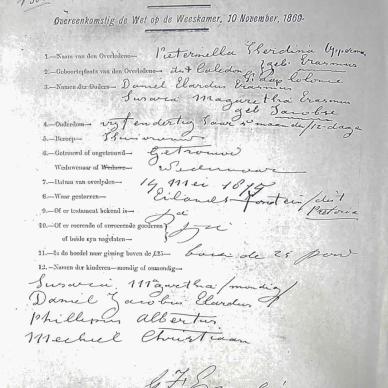 Overeenkomstig de Wet op de Weeskamer, 10 November, 1869.
1.—Naam van den Overledene— Pieternella Elerdina
geb. Erasmus
2.—Geboorteplaats van den Overledene— dist Caledon Kaap Colonie
3.—Namen der Ouders— Daniel Elardus Erasmus
Susara Magaretha Erasmus
geb Jacobse
4.—Ouderdom— vyf en dertig Jaar maande 12 dage
5.—Beroep— Huisvrouw
6.—Getrouwd of ongetrouwd— Getrouwd
Weduwnaar of Weduwe— Weduwnaar
7.—Datum van overlyden— 14 Mei
8.—Waar gestorven— Eilands fontein/dist
Pretoria
9.—Of er testament bekend is— ja
10.—Of er roerende of onroerende goederen
of beide zyn nagelaten— ja
11.—Is de boedel naar gissing boven de £25— boven de 25 pond
12.—Namen der kinderen—mondig of onmondig—
Susara Magaretha/mondig/
Daniel Jacobus Elardus
Phillippus Albertus
Mechiel Christiaan